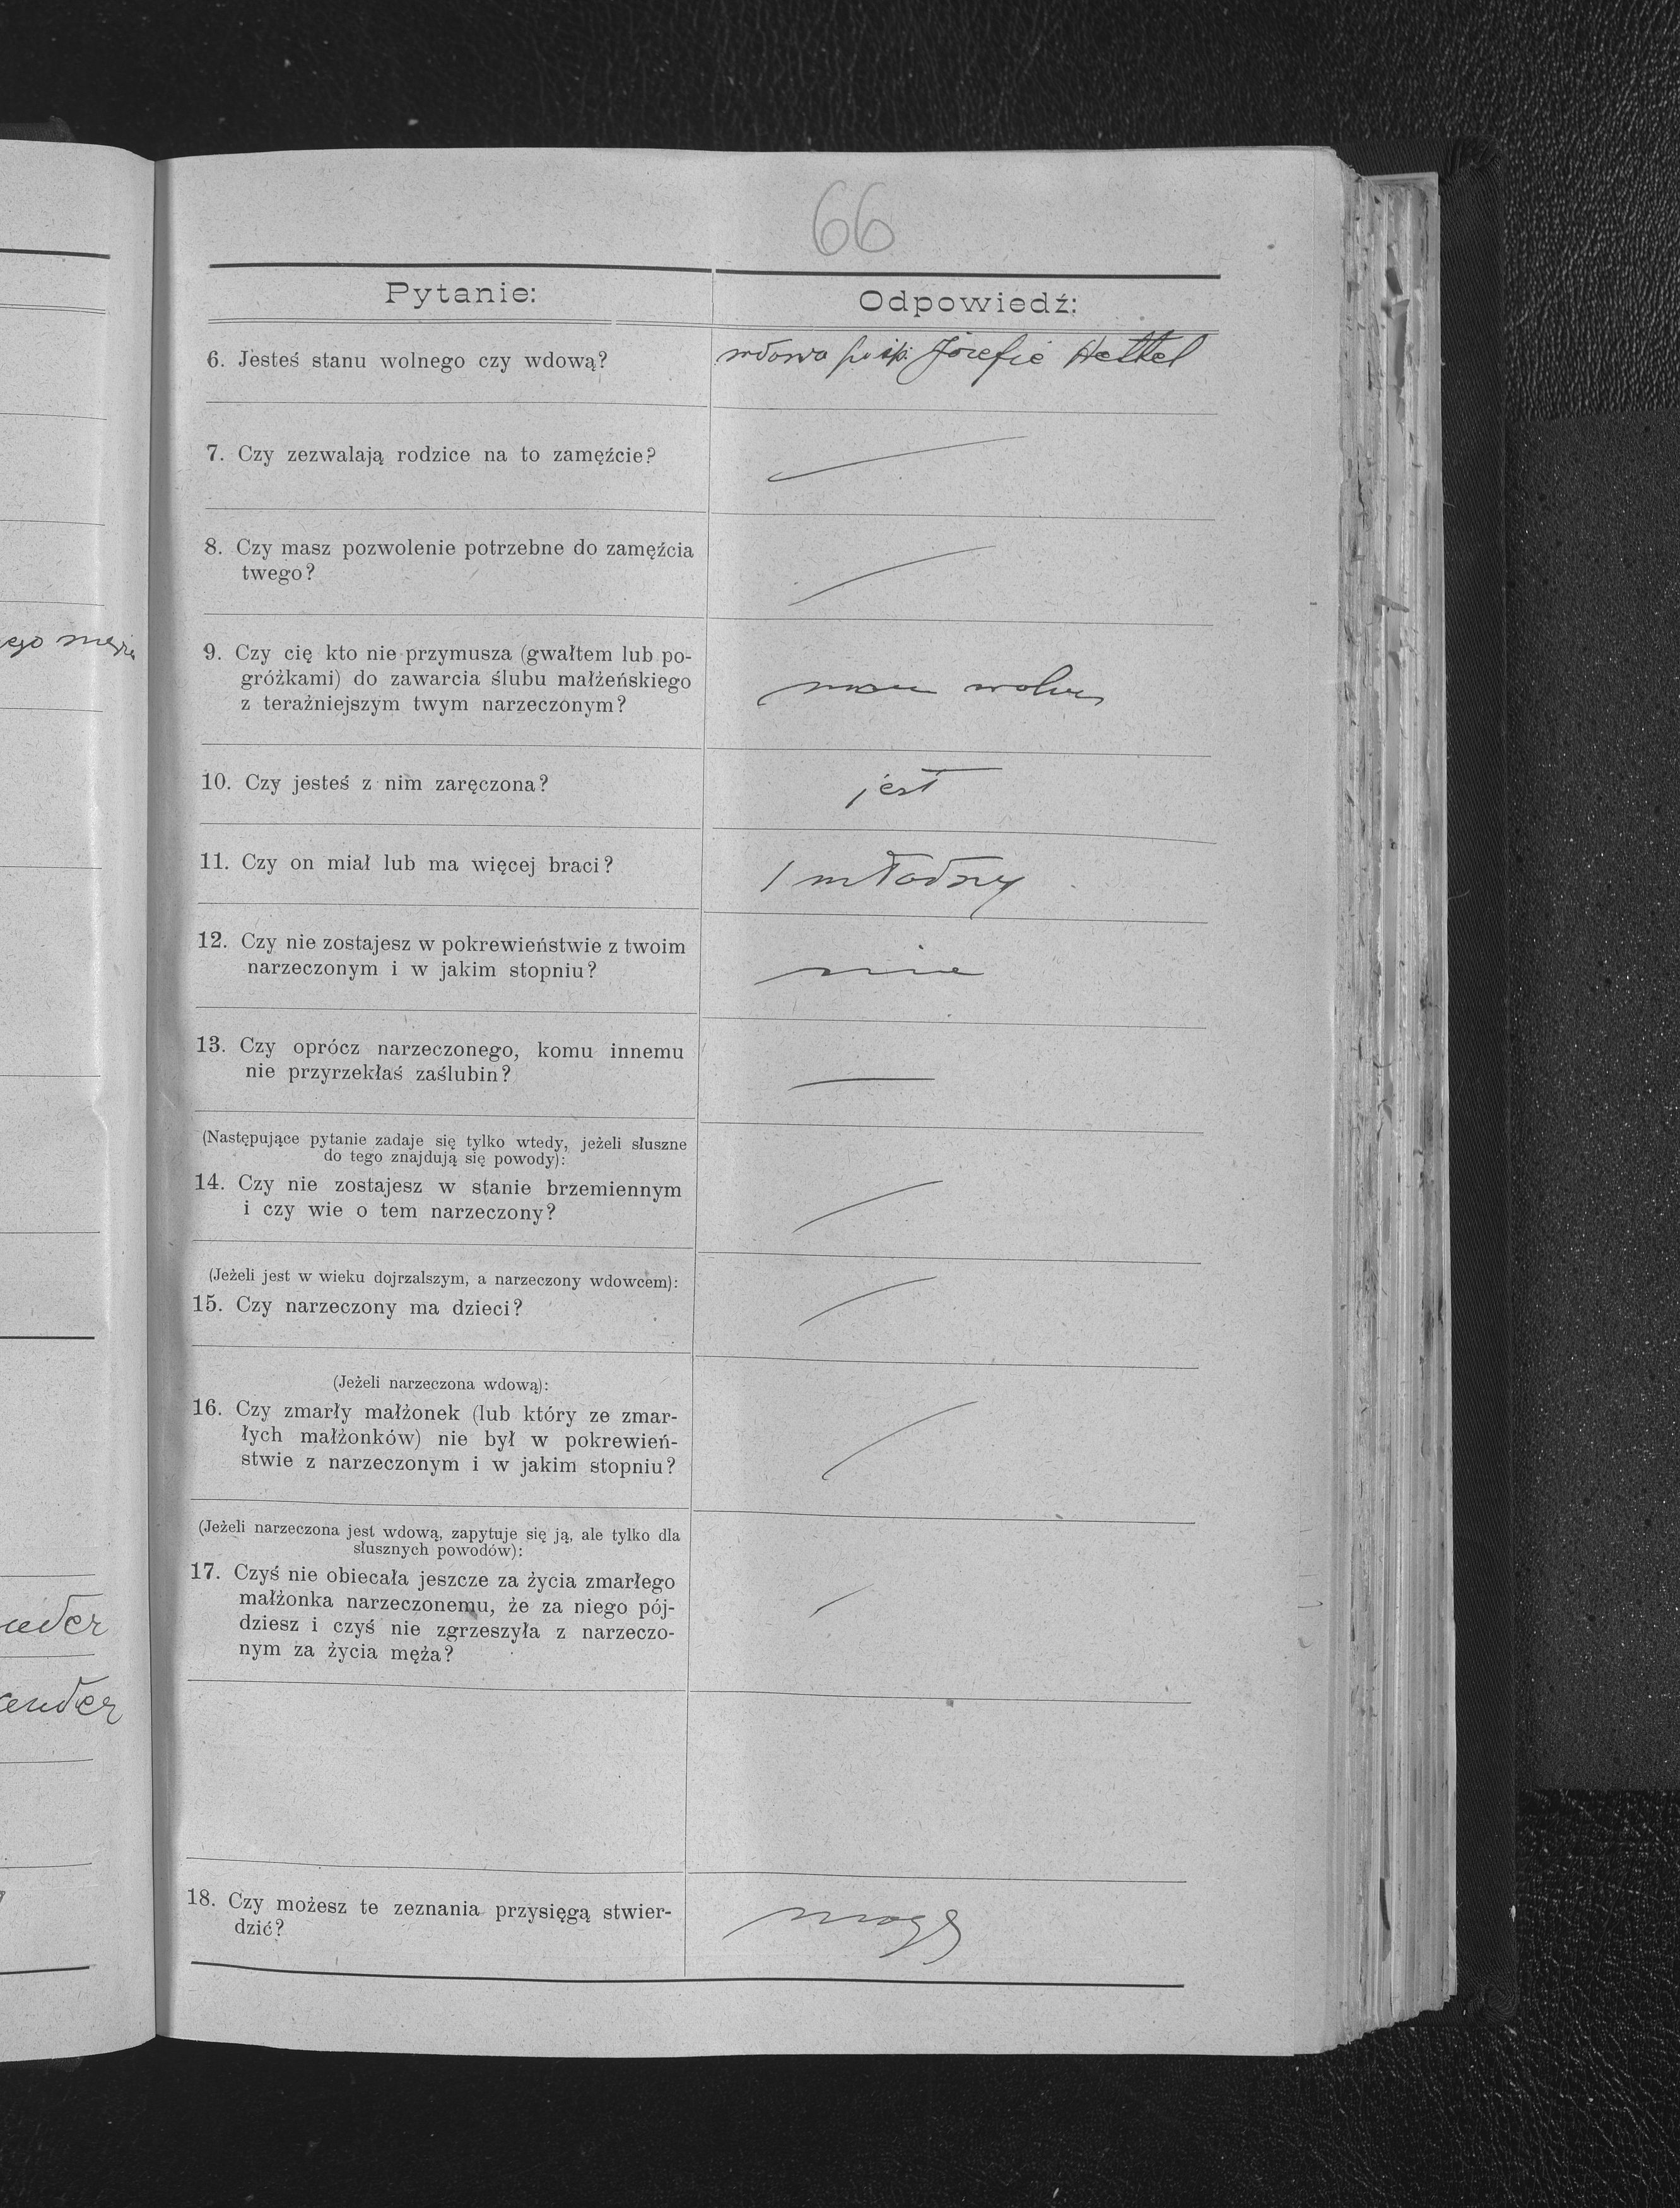 66
Pytanie:
Odpowiedź:
6. Jesteś stanu wolnego czy wdową?
wdowa po śp. Józefie Hettel
7. Czy zezwalają rodzice na to zamęźcie?
8. Czy masz pozwolenie potrzebne do zamęźcia
twego?
9. Czy cię kto nie przymusza (gwałtem lub po-
gróżkami) do zawarcia ślubu małżeńskiego
z teraźniejszym twym narzeczonym?
10. Czy jesteś z nim zaręczona?
jest
11. Czy on miał lub ma więcej braci?
1 młodszy
12. Czy nie zostajesz w pokrewieństwie z twoim
narzeczonym i w jakim stopniu?
nie
13. Czy oprócz narzeczonego, komu innemu
nie przyrzekłaś zaślubin?
(Następujące pytanie zadaje się tylko wtedy, jeżeli słuszne
do tego znajdują się powody):
14. Czy nie zostajesz w stanie brzemiennym
i czy wie o tem narzeczony?
(Jeżeli jest w wieku dojrzalszym, a narzeczony wdowcem):
15. Czy narzeczony ma dzieci?
(Jeżeli narzeczona wdową):
16. Czy zmarły małżonek (lub który ze zmar-
łych małżonków) nie był w pokrewień-
stwie z narzeczonym i w jakim stopniu?
(Jeżeli narzeczona jest wdową, zapytuje się ją, ale tylko dla
słusznych powodów):
17. Czyś nie obiecała jeszcze za życia zmarłego
małżonka narzeczonemu, że za niego pój-
dziesz i czyś nie zgrzeszyła z narzeczo-
nym za życia męża?
18. Czy możesz te zeznania przysięgą stwier-
dzić?
mogę